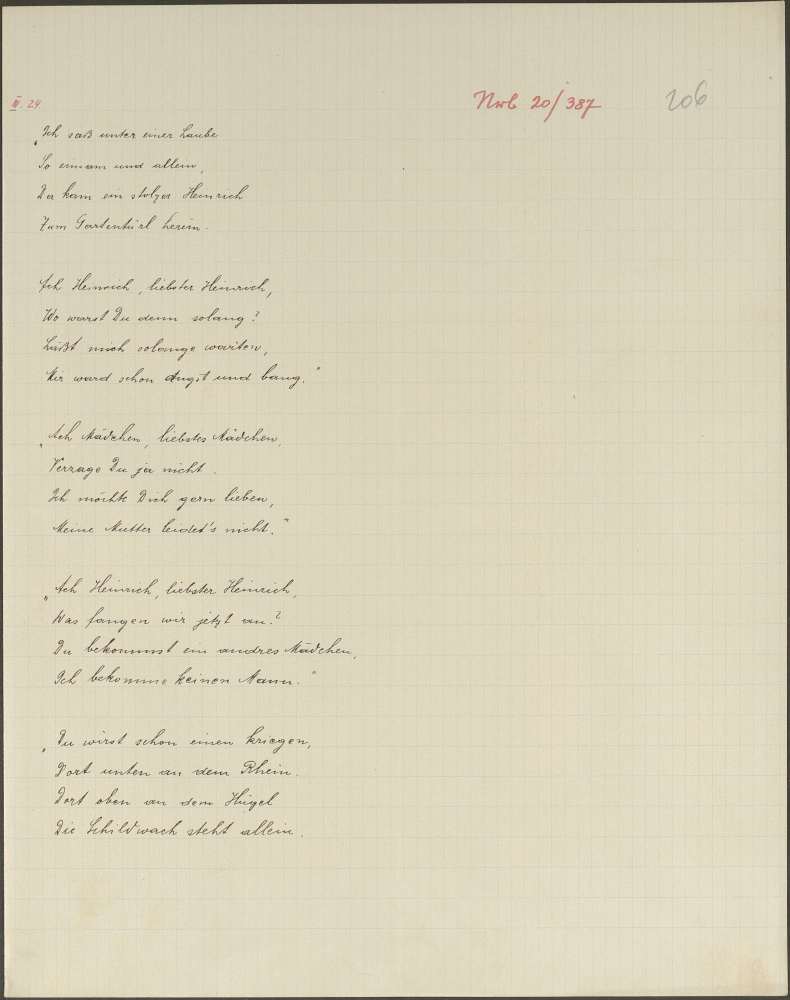 III. 24
Nrb 20/387
206
„Ich saß unter einer Laube
So einsam und allein,
Da kam ein stolzer Heinrich
Zum Gartentürl herein.
Ach Heinrich, liebster Heinrich,
Wo warst Du denn solang?
Läßt mich solange warten,
Mir ward schon Angst und bang.“
„Ach Mädchen, liebstes Mädchen,
Verzage Du ja nicht.
Ich möchte Dich gern lieben,
Meine Mutter leidet's nicht.“
„Ach Heinrich, liebster Heinrich,
Was fangen wir jetzt an?
Du bekommst ein andres Mädchen,
Ich bekomme keinen Mann.“
„Du wirst schon einen kriegen,
Dort unten an dem Rhein.
Dort oben an dem Hügel
Die Schildwach steht allein.